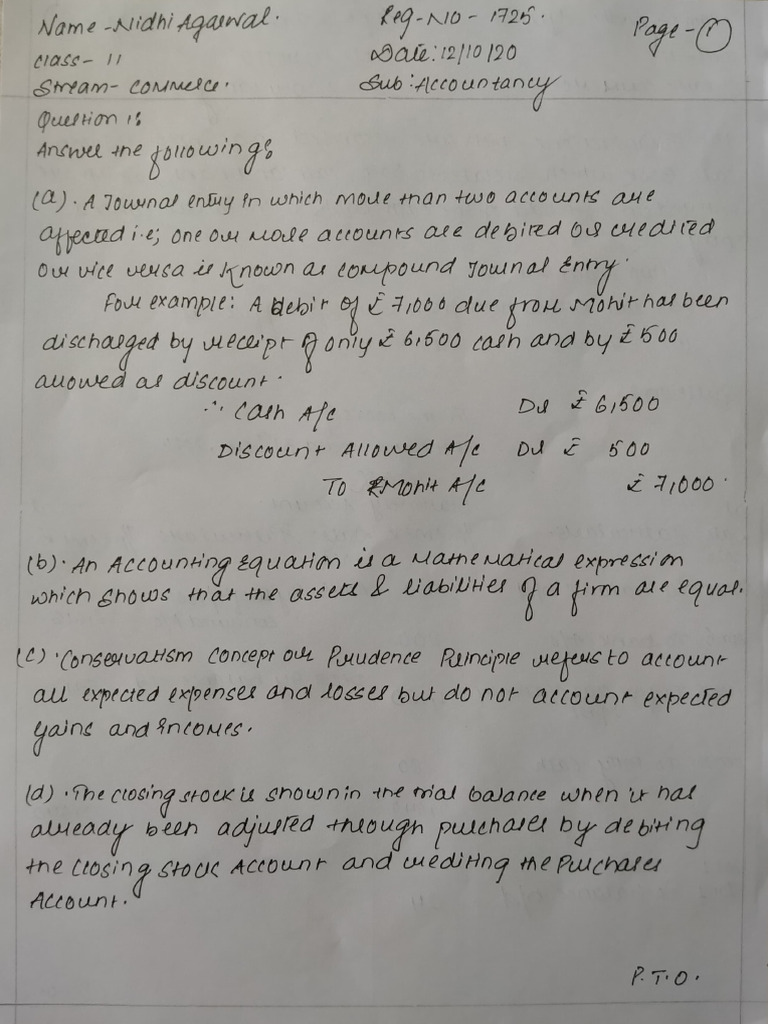 Name - Nidhi Agarwal. Reg-NO - 1725. Page - 1
Class - 11 Date: 12/10/20
Stream - Commerce. Sub: Accountancy
Question 1:
Answer the following:
(a). A Journal entry in which more than two accounts are
affected i.e; one or more accounts are debited or credited
or vice versa is known as compound Journal Entry.
For example: A debit of ₹ 7,000 due from Mohit has been
discharged by receipt of only ₹ 6,500 cash and by ₹ 500
allowed as discount.
∴ Cash A/c Dr ₹ 6,500
Discount Allowed A/c Dr ₹ 500
To Mohit A/c ₹ 7,000
(b). An Accounting Equation is a Mathematical expression
which shows that the assets & liabilities of a firm are equal.
(c). Conservatism Concept or Prudence Principle refers to account
all expected expenses and losses but do not account expected
gains and incomes.
(d). The closing stock is shown in the trial balance when it has
already been adjusted through purchases by debiting
the closing stock Account and crediting the Purchases
Account.
P.T.O.